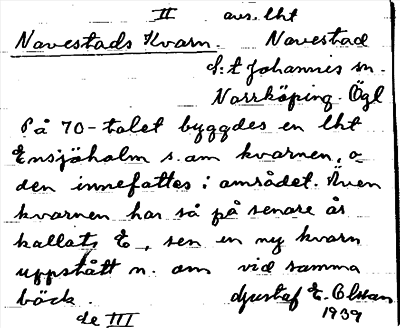 II avs. lht
Navestads Kvarn. Navestad
S:t Johannis sn.
Norrköping Ögl
På 70-talet byggdes en lht
Ensjöholm s. om kvarnen, o
den innefattes i området. Även
kvarnen har så på senare år
kallats E, sen en ny kvarn
uppstått n. om vid samma
bäck. Gustaf E. Olsson
de III 1939